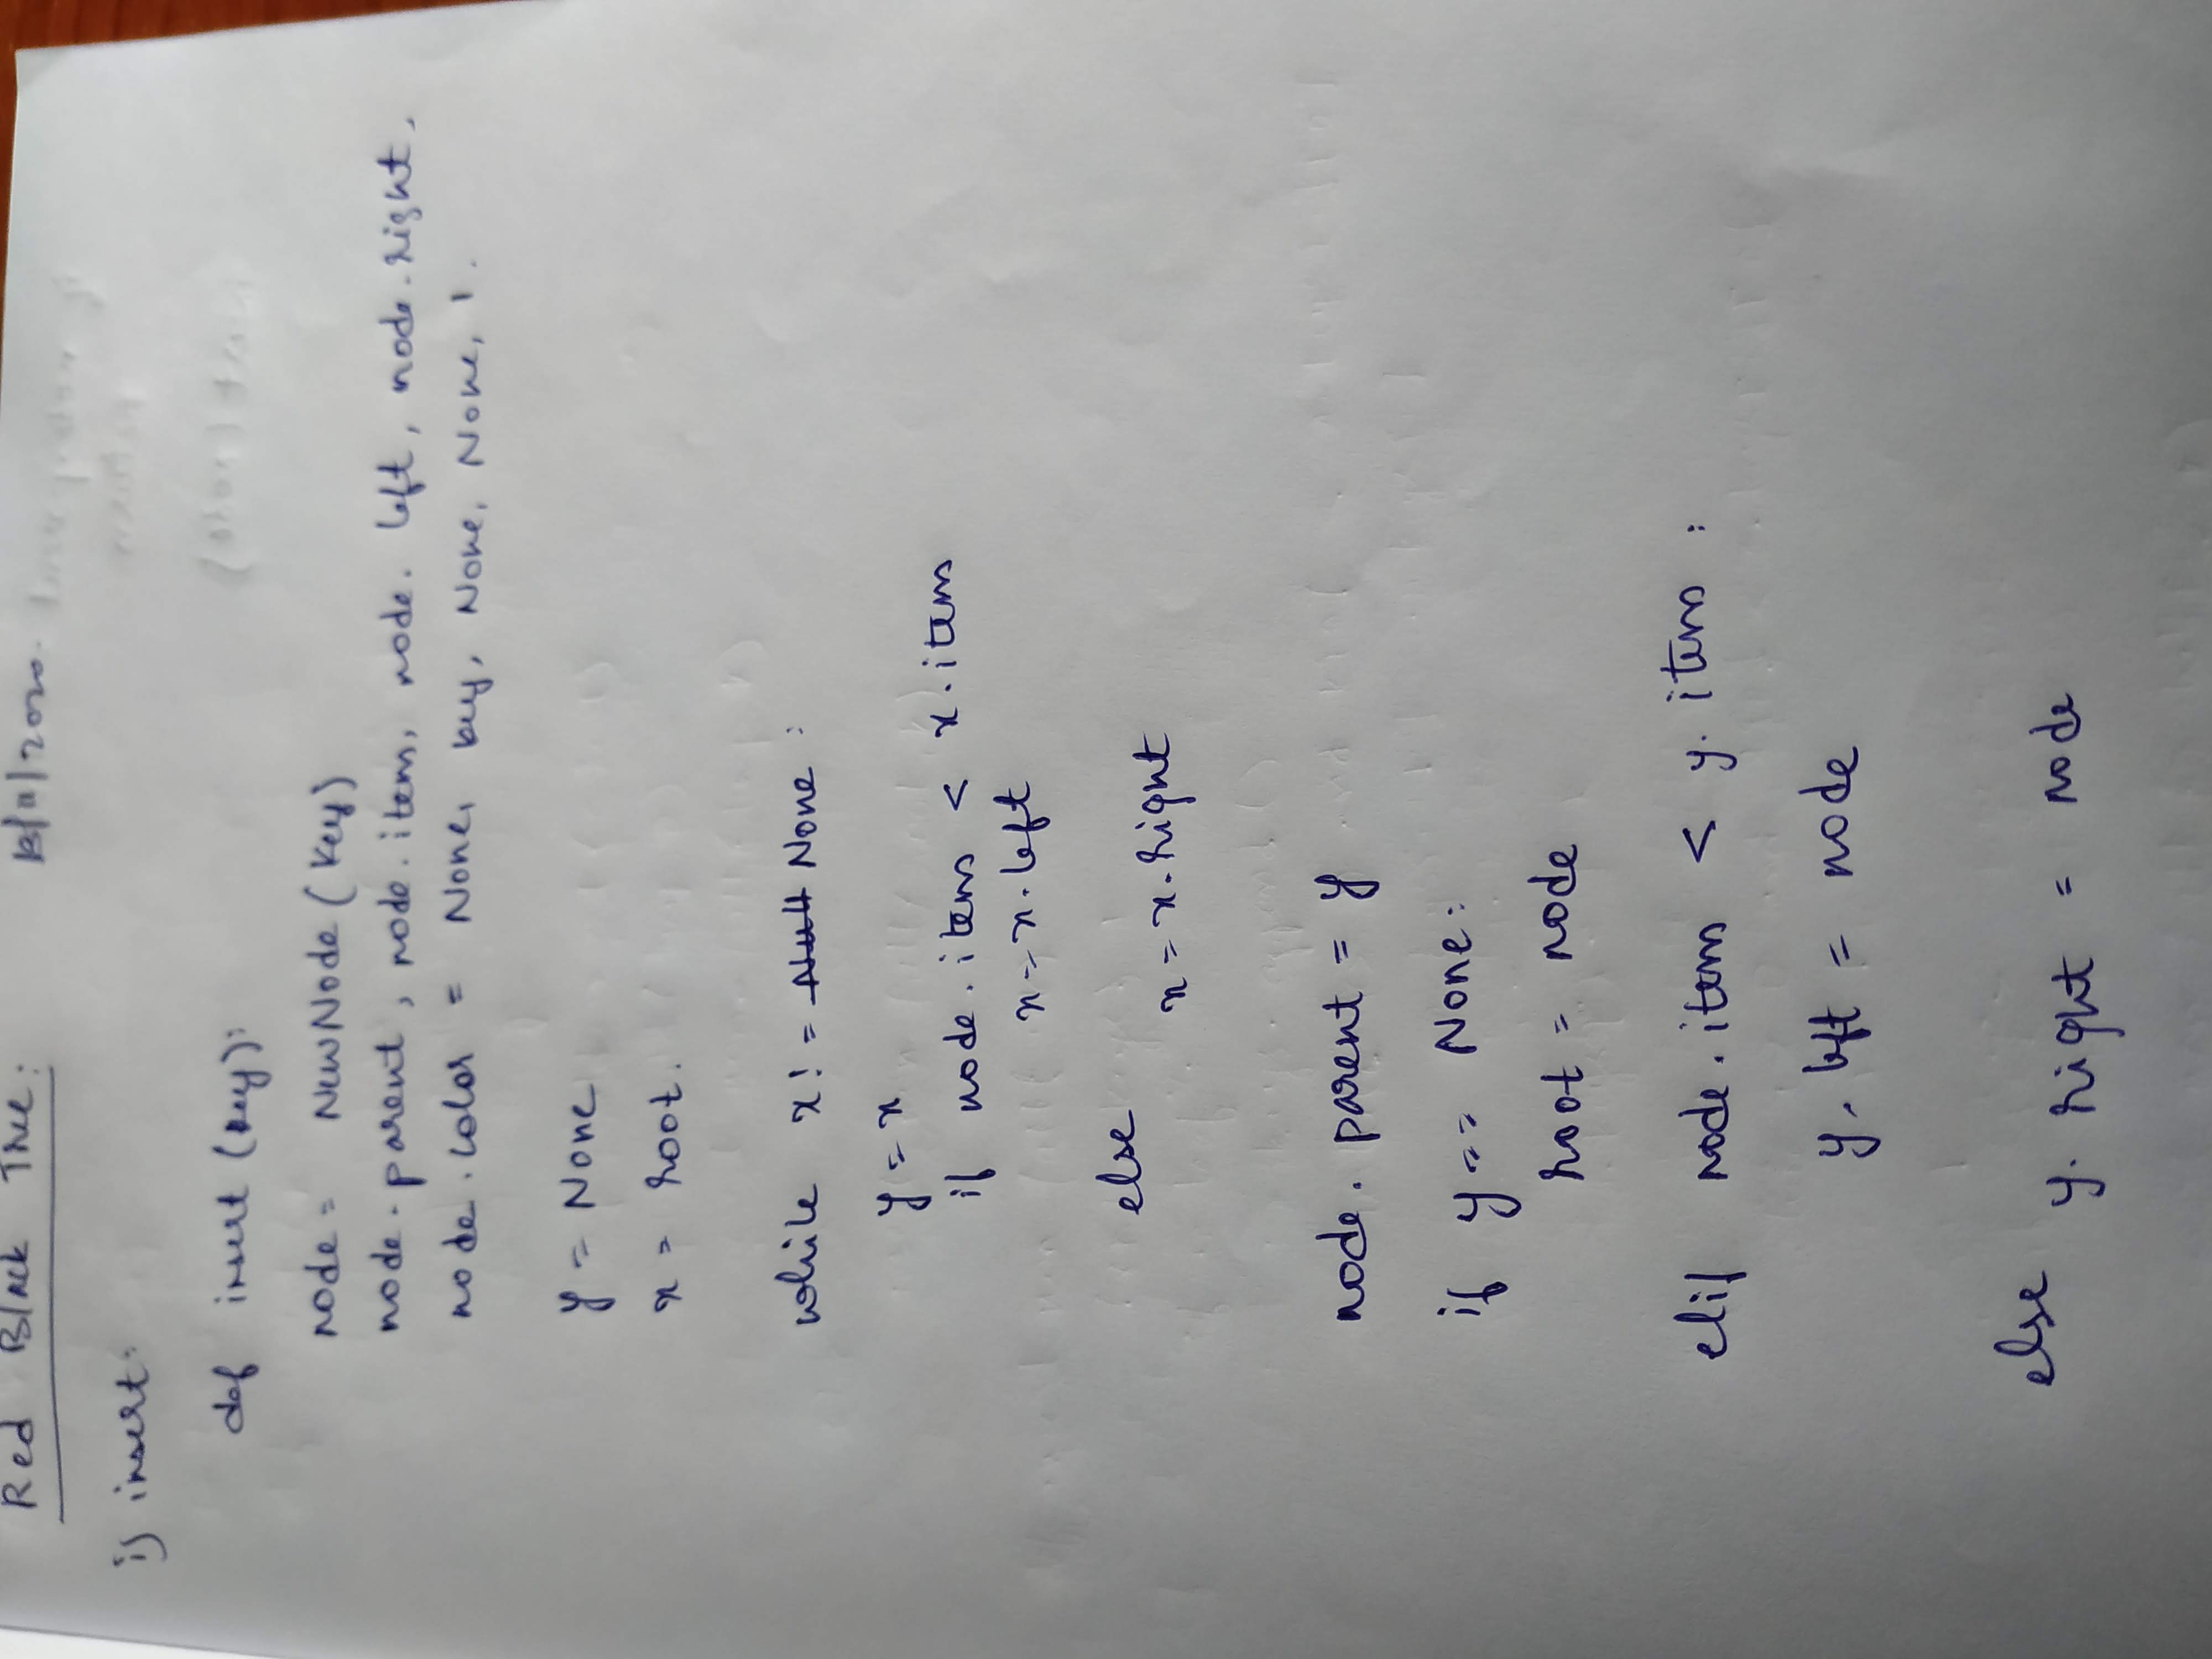 Red Black Tree: 13/11/2020.
i) insert:
def insert (key):
node = NewNode (key)
node.parent, node.item, node.left, node.right,
node.color = None, key, None, None, 1.
y = None
x = root.
while x != Null None :
y = x
if node.item < x.item
x = x.left
else
x = x.right
node.parent = y
if y == None:
root = node
elif node.item < y.item :
y.left = node
else
y.right = node